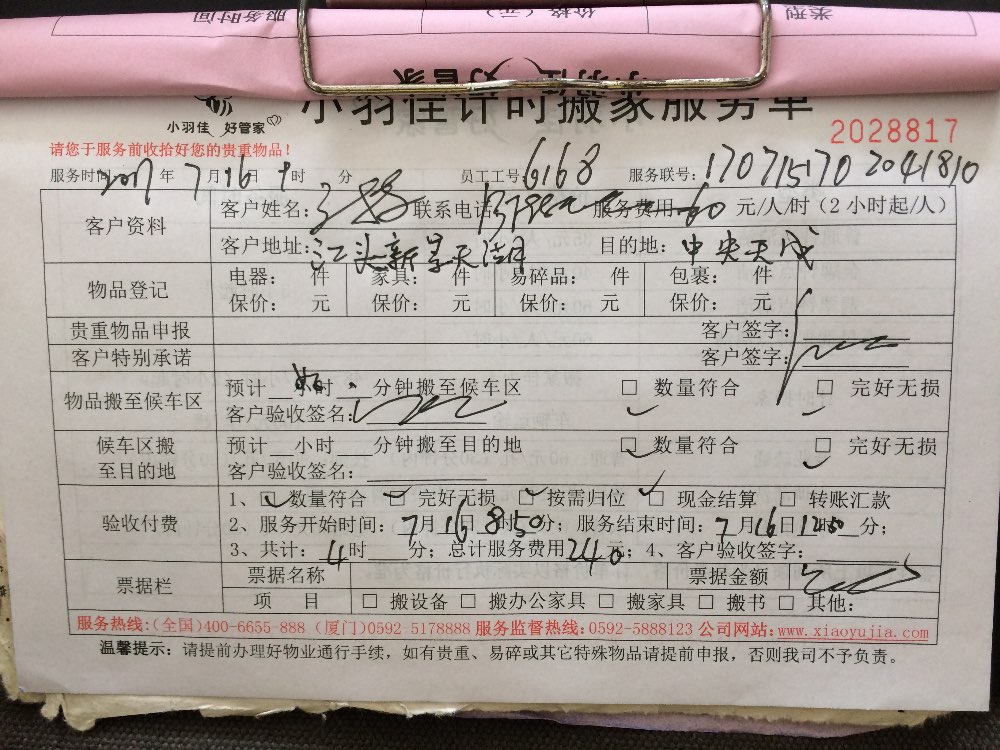 服务时间 价格(元) 类型
小羽佳 好管家
小羽佳计时搬家服务单
小羽佳 好管家
2028817
请您于服务前收拾好您的贵重物品！
服务时间 2017 年 7 月 16 日 9 时 分 员工工号: 6168 服务联号: 170715170 2041810
客户资料
客户姓名: 联系电话 服务费用 60 元/人/时（2小时起/人）
客户地址: 江头新景天湖 目的地: 中央天成
物品登记
电器: 件 家具: 件 易碎品: 件 包裹: 件
保价: 元 保价: 元 保价: 元 保价: 元
贵重物品申报 客户签字:
客户特别承诺 客户签字:
物品搬至候车区
预计 小时 分钟搬至候车区 □ 数量符合 □ 完好无损
客户验收签名:
候车区搬至目的地
预计 小时 分钟搬至目的地 □ 数量符合 □ 完好无损
客户验收签名:
验收付费
1、□ 数量符合 □ 完好无损 □ 按需归位 □ 现金结算 □ 转账汇款
2、服务开始时间: 7月16日8时50分；服务结束时间: 7月16日12时50分；
3、共计: 4时 分；总计服务费用 240 元；4、客户验收签字:
票据栏
票据名称 票据金额
项 目 □ 搬设备 □ 搬办公家具 □ 搬家具 □ 搬书 □ 其他:
服务热线:(全国)400-6655-888 (厦门)0592-5178888 服务监督热线:0592-5888123 公司网站:www.xiaoyujia.com
温馨提示: 请提前办理好物业通行手续，如有贵重、易碎或其它特殊物品请提前申报，否则我司不予负责。